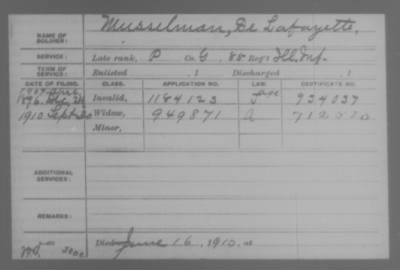 NAME OF SOLDIER: Musselman, De Lafayette,
SERVICE: Late rank, P Co. G, 88 Reg't Ill. Inf.
TERM OF SERVICE: Enlisted , 1 Discharged , 1
DATE OF FILING. CLASS. APPLICATION NO. LAW. CERTIFICATE NO.
1896 Invalid, 1184123 934037
1910. Sept. 20 Widow, 949871
Minor,
ADDITIONAL SERVICES:
REMARKS:
Died June 16, 1910, at